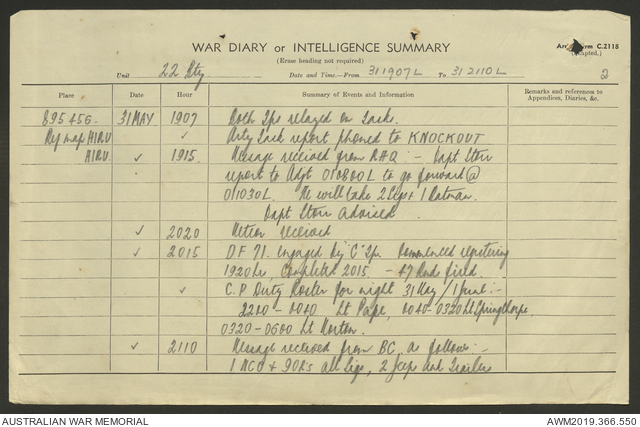 WAR DIARY or INTELLIGENCE SUMMARY
Army Form C.2118
(Erase heading not required) (Adapted.)
Unit 22 Bty Date and Time—From 311907L To 312110L 2
Place Date Hour Summary of Events and Information Remarks and references to Appendices, Diaries, &c.
895456 31 MAY 1907 Both Tps relayed on Task.
Ref map AIRU ✓ Arty Task report phoned to KNOCKOUT
AIRU. ✓ 1915. Message received from RHQ :- Capt Storr
report to Adjt 010800L to go forward @
011030L. He will take 2 Sigs + 1 Batman.
Capt Storr Advised.
✓ 2020 Meteor received
✓ 2015 DF 71. engaged by "C" Tp. Commenced registering
✓ 1920 hr, Completed 2015 - 47 Rnds fired.
C.P Duty Roster for night 31 May / 1 June :-
2200 - 0040 Lt Pape, 0040-0320 Lt Springthorpe
0320-0600 Lt Norton.
✓ 2110 Message received from BC. as follows :-
1 NCO + 9 OR's all Sigs, 2 Jeeps and Trailers
AUSTRALIAN WAR MEMORIAL AWM2019.366.550